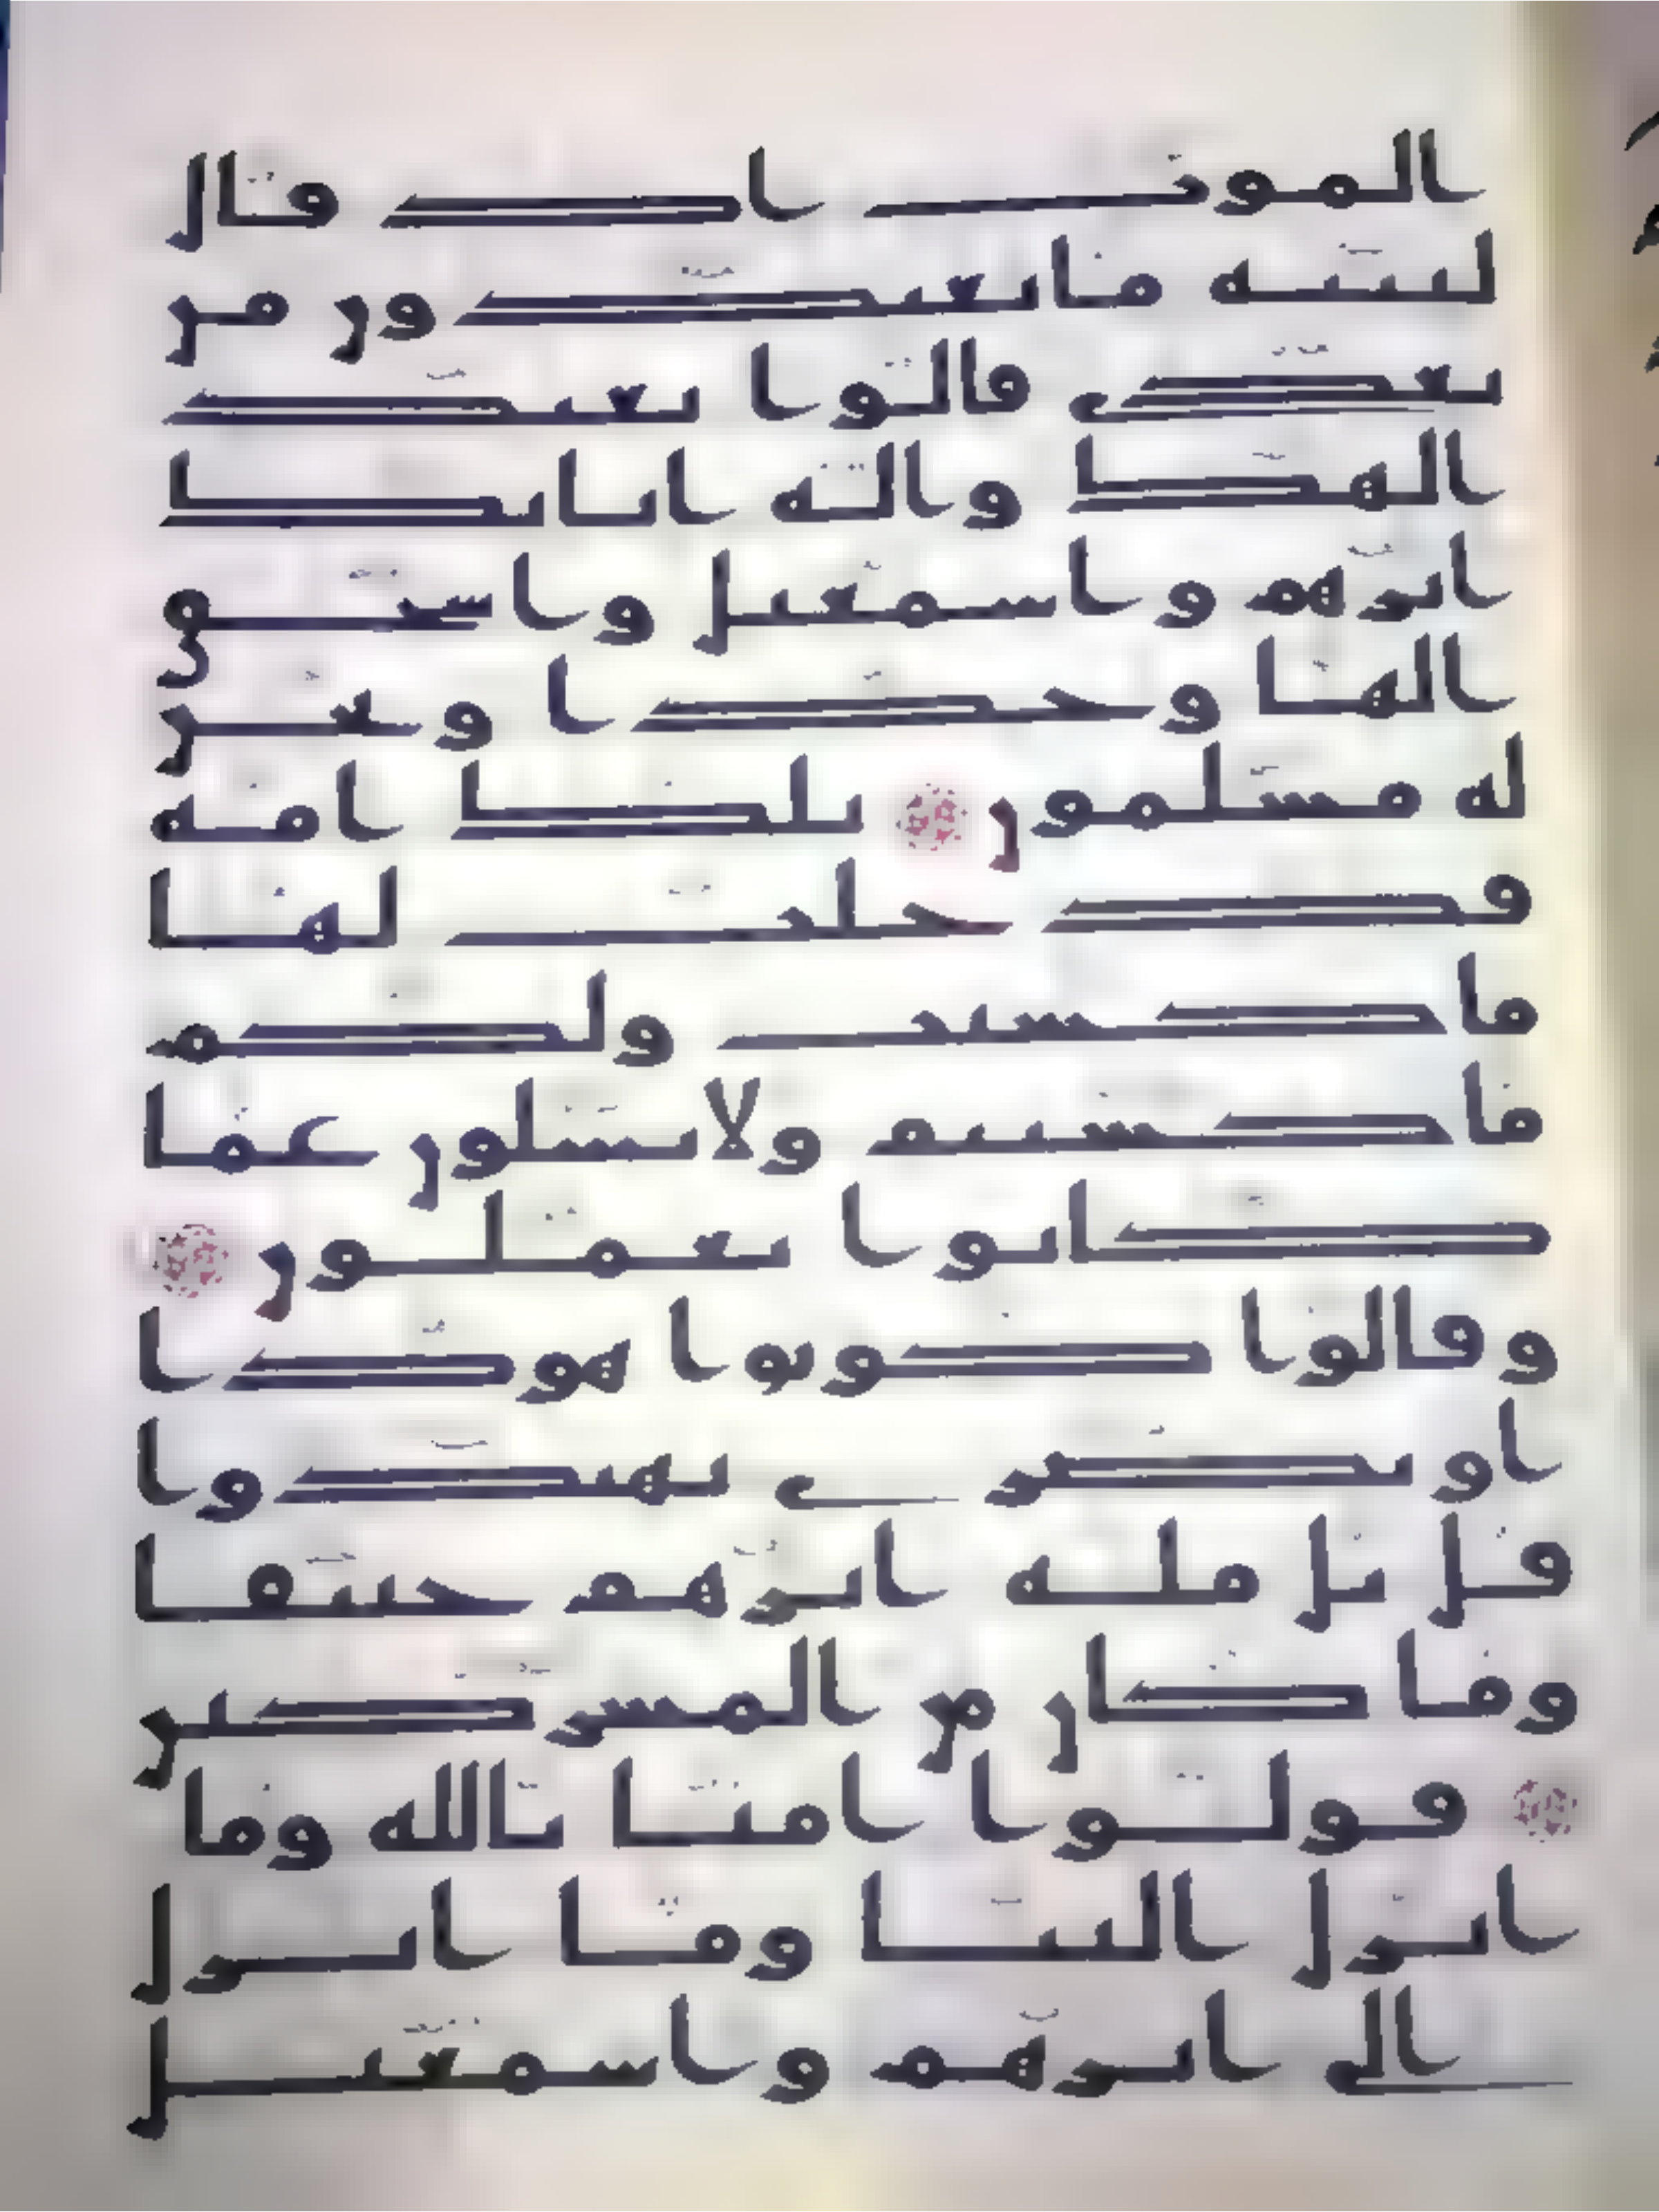 الموت اد قال
لبنيه ما تعبدون من
بعدي قالوا نعبد
الهك واله ابايك
ابرهيم واسمعيل واسحق
الها وحدا ونحن
له مسلمون تلك امه
قد خلت لها
ما كسبت ولكم
ما كسبتم ولا تسلون عما
كانوا يعملون
وقالوا كونوا هودا
او نصرى تهتدوا
قل بل مله ابرهم حنيفا
وما كان من المشركين
قولوا امنا بالله وما
انزل الينا وما انزل
الى ابرهم واسمعيل